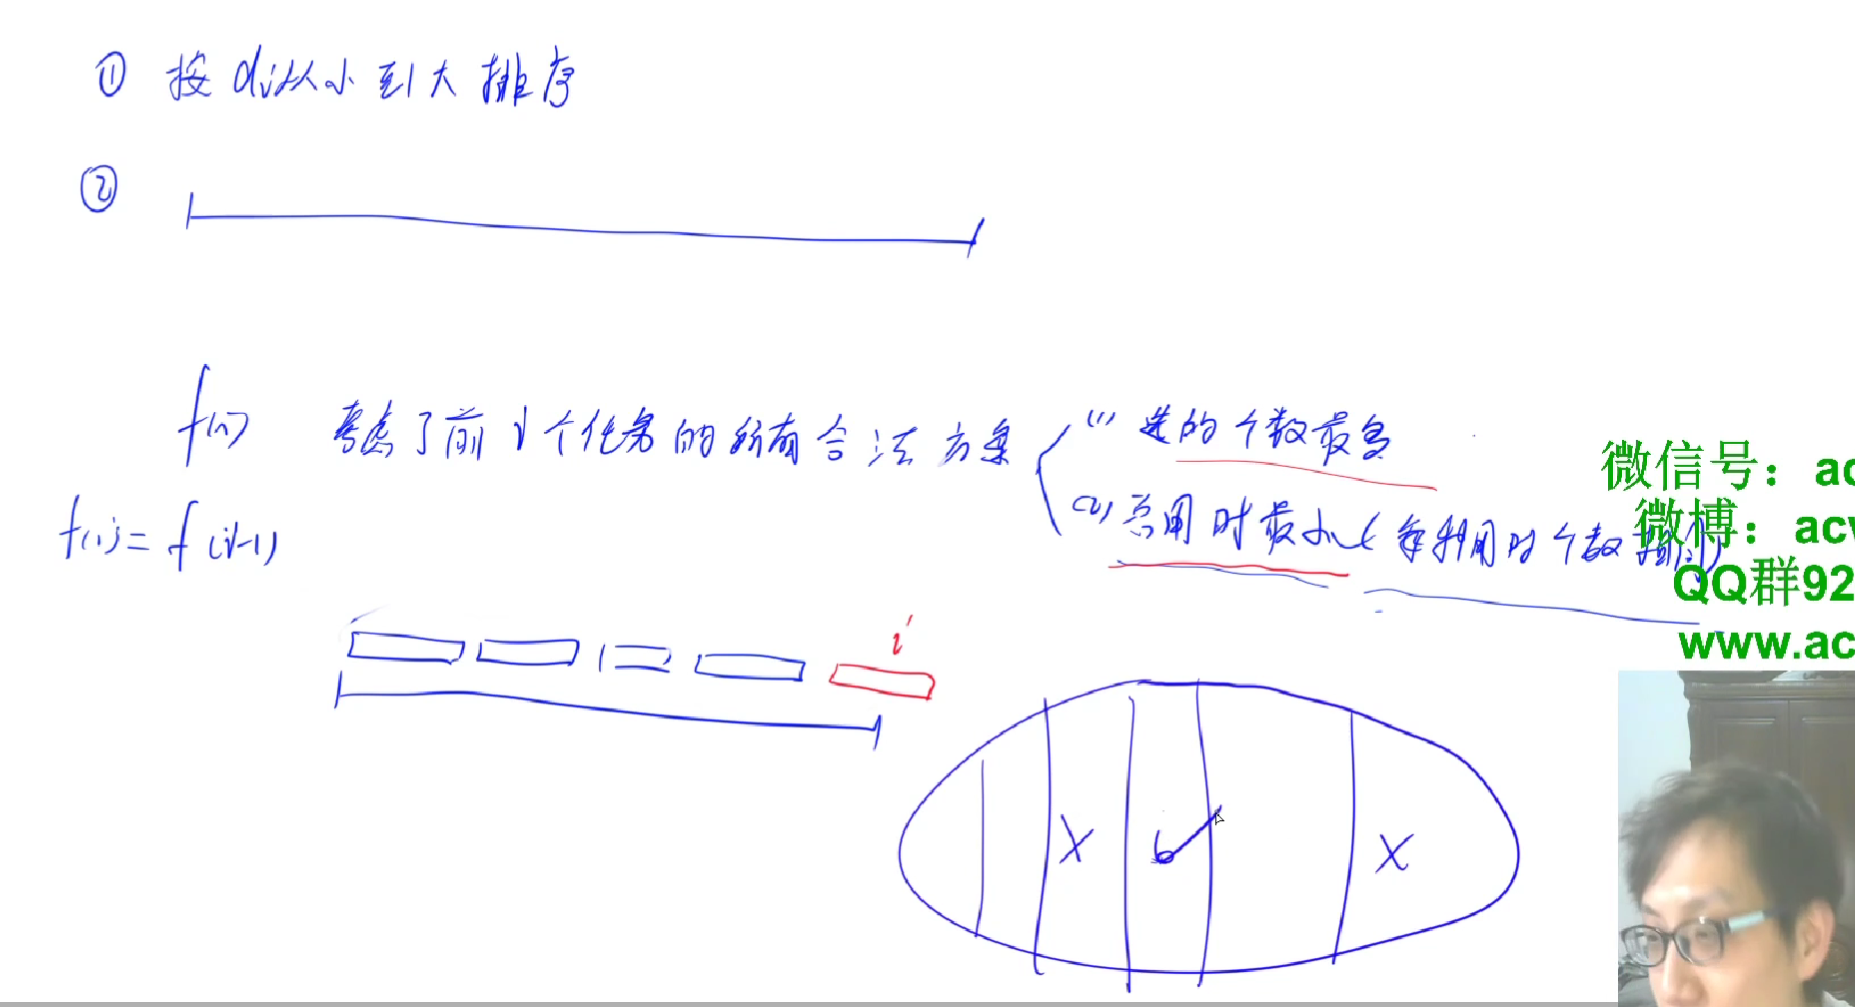 ① 按 di从小到大排序
②
f(i) 考虑了前i个任务的所有合法方案
(1) 选的个数最多
(2) 总用时最小(在利用时个数相同)
f(i) = f(i-1)
i
X
X
微信号：ac
微博：acw
QQ群92
www.ac